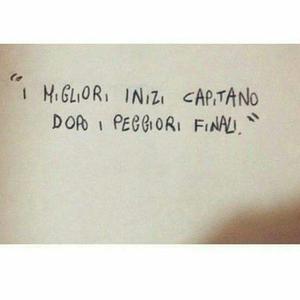 "I MIGLIORI INIZI CAPITANO
DOPO I PEGGIORI FINALI."